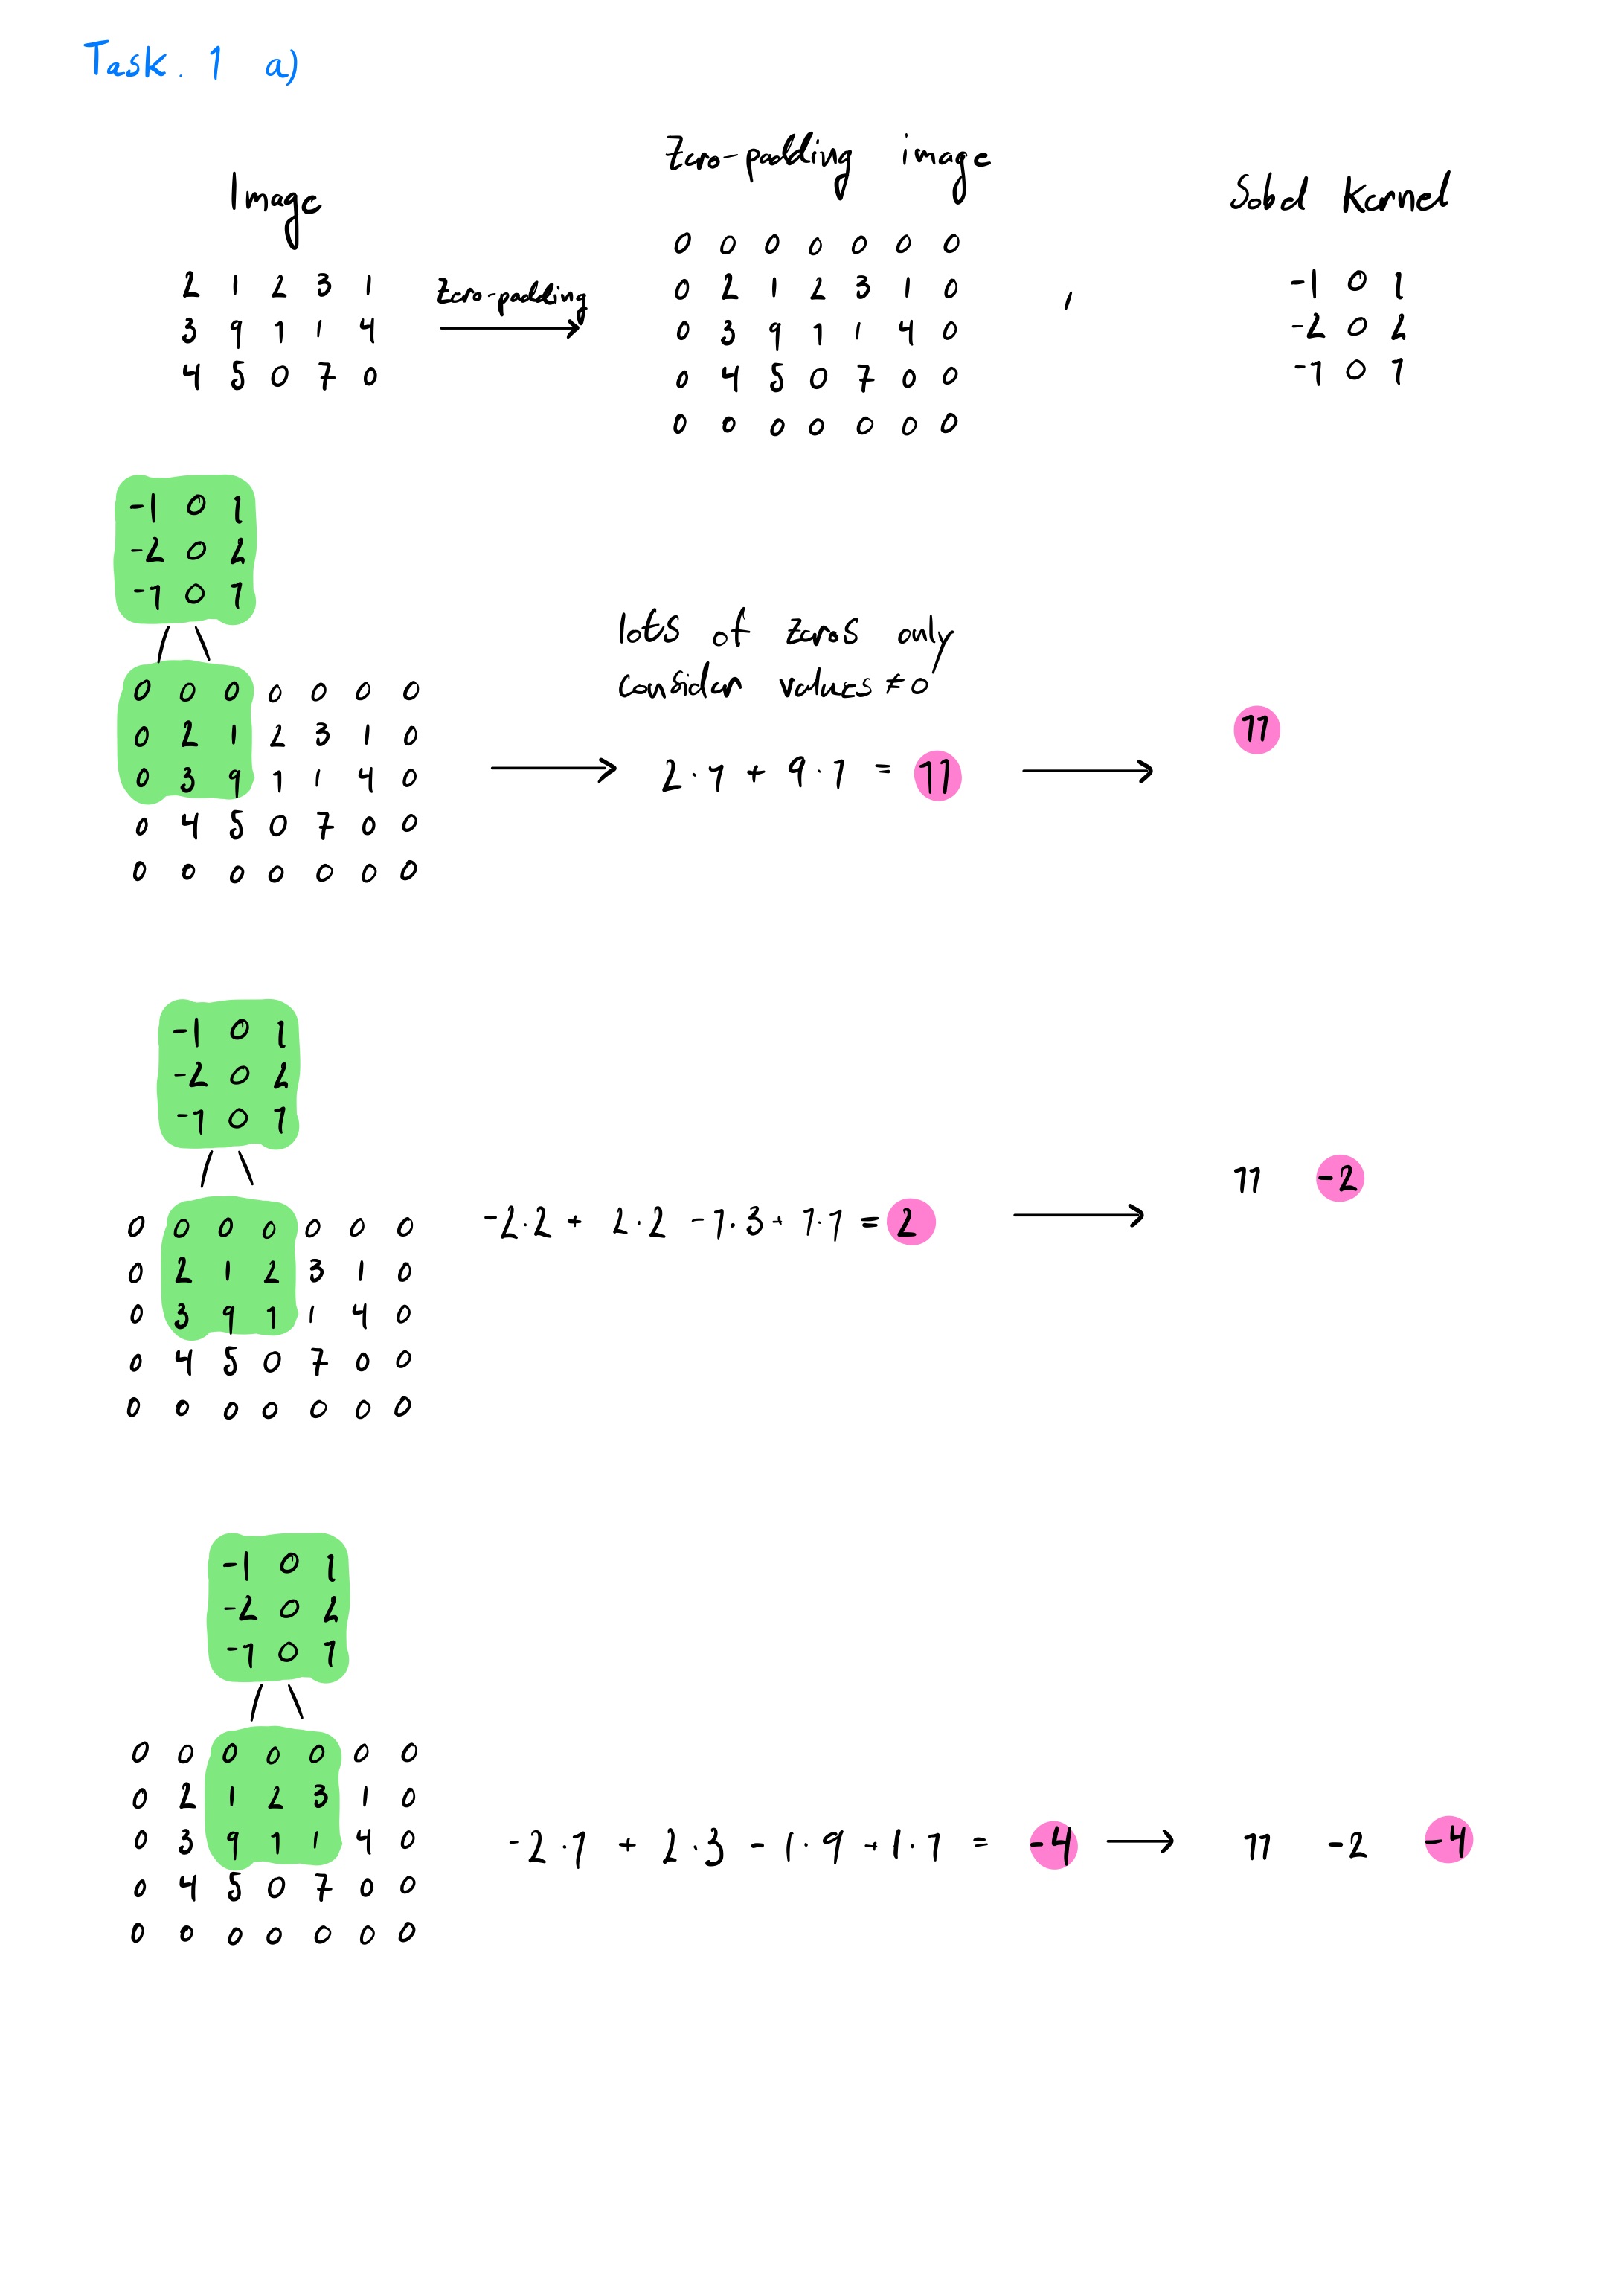 Task. 1 a)
Image
Zero-padding image
Sobel Kernel
2 1 2 3 1
3 9 1 1 4
4 5 0 7 0
Zero-padding
0 0 0 0 0 0 0
0 2 1 2 3 1 0
0 3 9 1 1 4 0
0 4 5 0 7 0 0
0 0 0 0 0 0 0
,
-1 0 1
-2 0 2
-1 0 1
-1 0 1
-2 0 2
-1 0 1
0 0 0 0 0 0 0
0 2 1 2 3 1 0
0 3 9 1 1 4 0
0 4 5 0 7 0 0
0 0 0 0 0 0 0
lots of zeros only
consider values ≠ 0
2·1 + 9·1 = 11
11
-1 0 1
-2 0 2
-1 0 1
0 0 0 0 0 0 0
0 2 1 2 3 1 0
0 3 9 1 1 4 0
0 4 5 0 7 0 0
0 0 0 0 0 0 0
-2·2 + 2·2 -1·3 + 1·1 = 2
11 -2
-1 0 1
-2 0 2
-1 0 1
0 0 0 0 0 0 0
0 2 1 2 3 1 0
0 3 9 1 1 4 0
0 4 5 0 7 0 0
0 0 0 0 0 0 0
-2·1 + 2·3 - 1·9 + 1·1 = -4
11 -2 -4